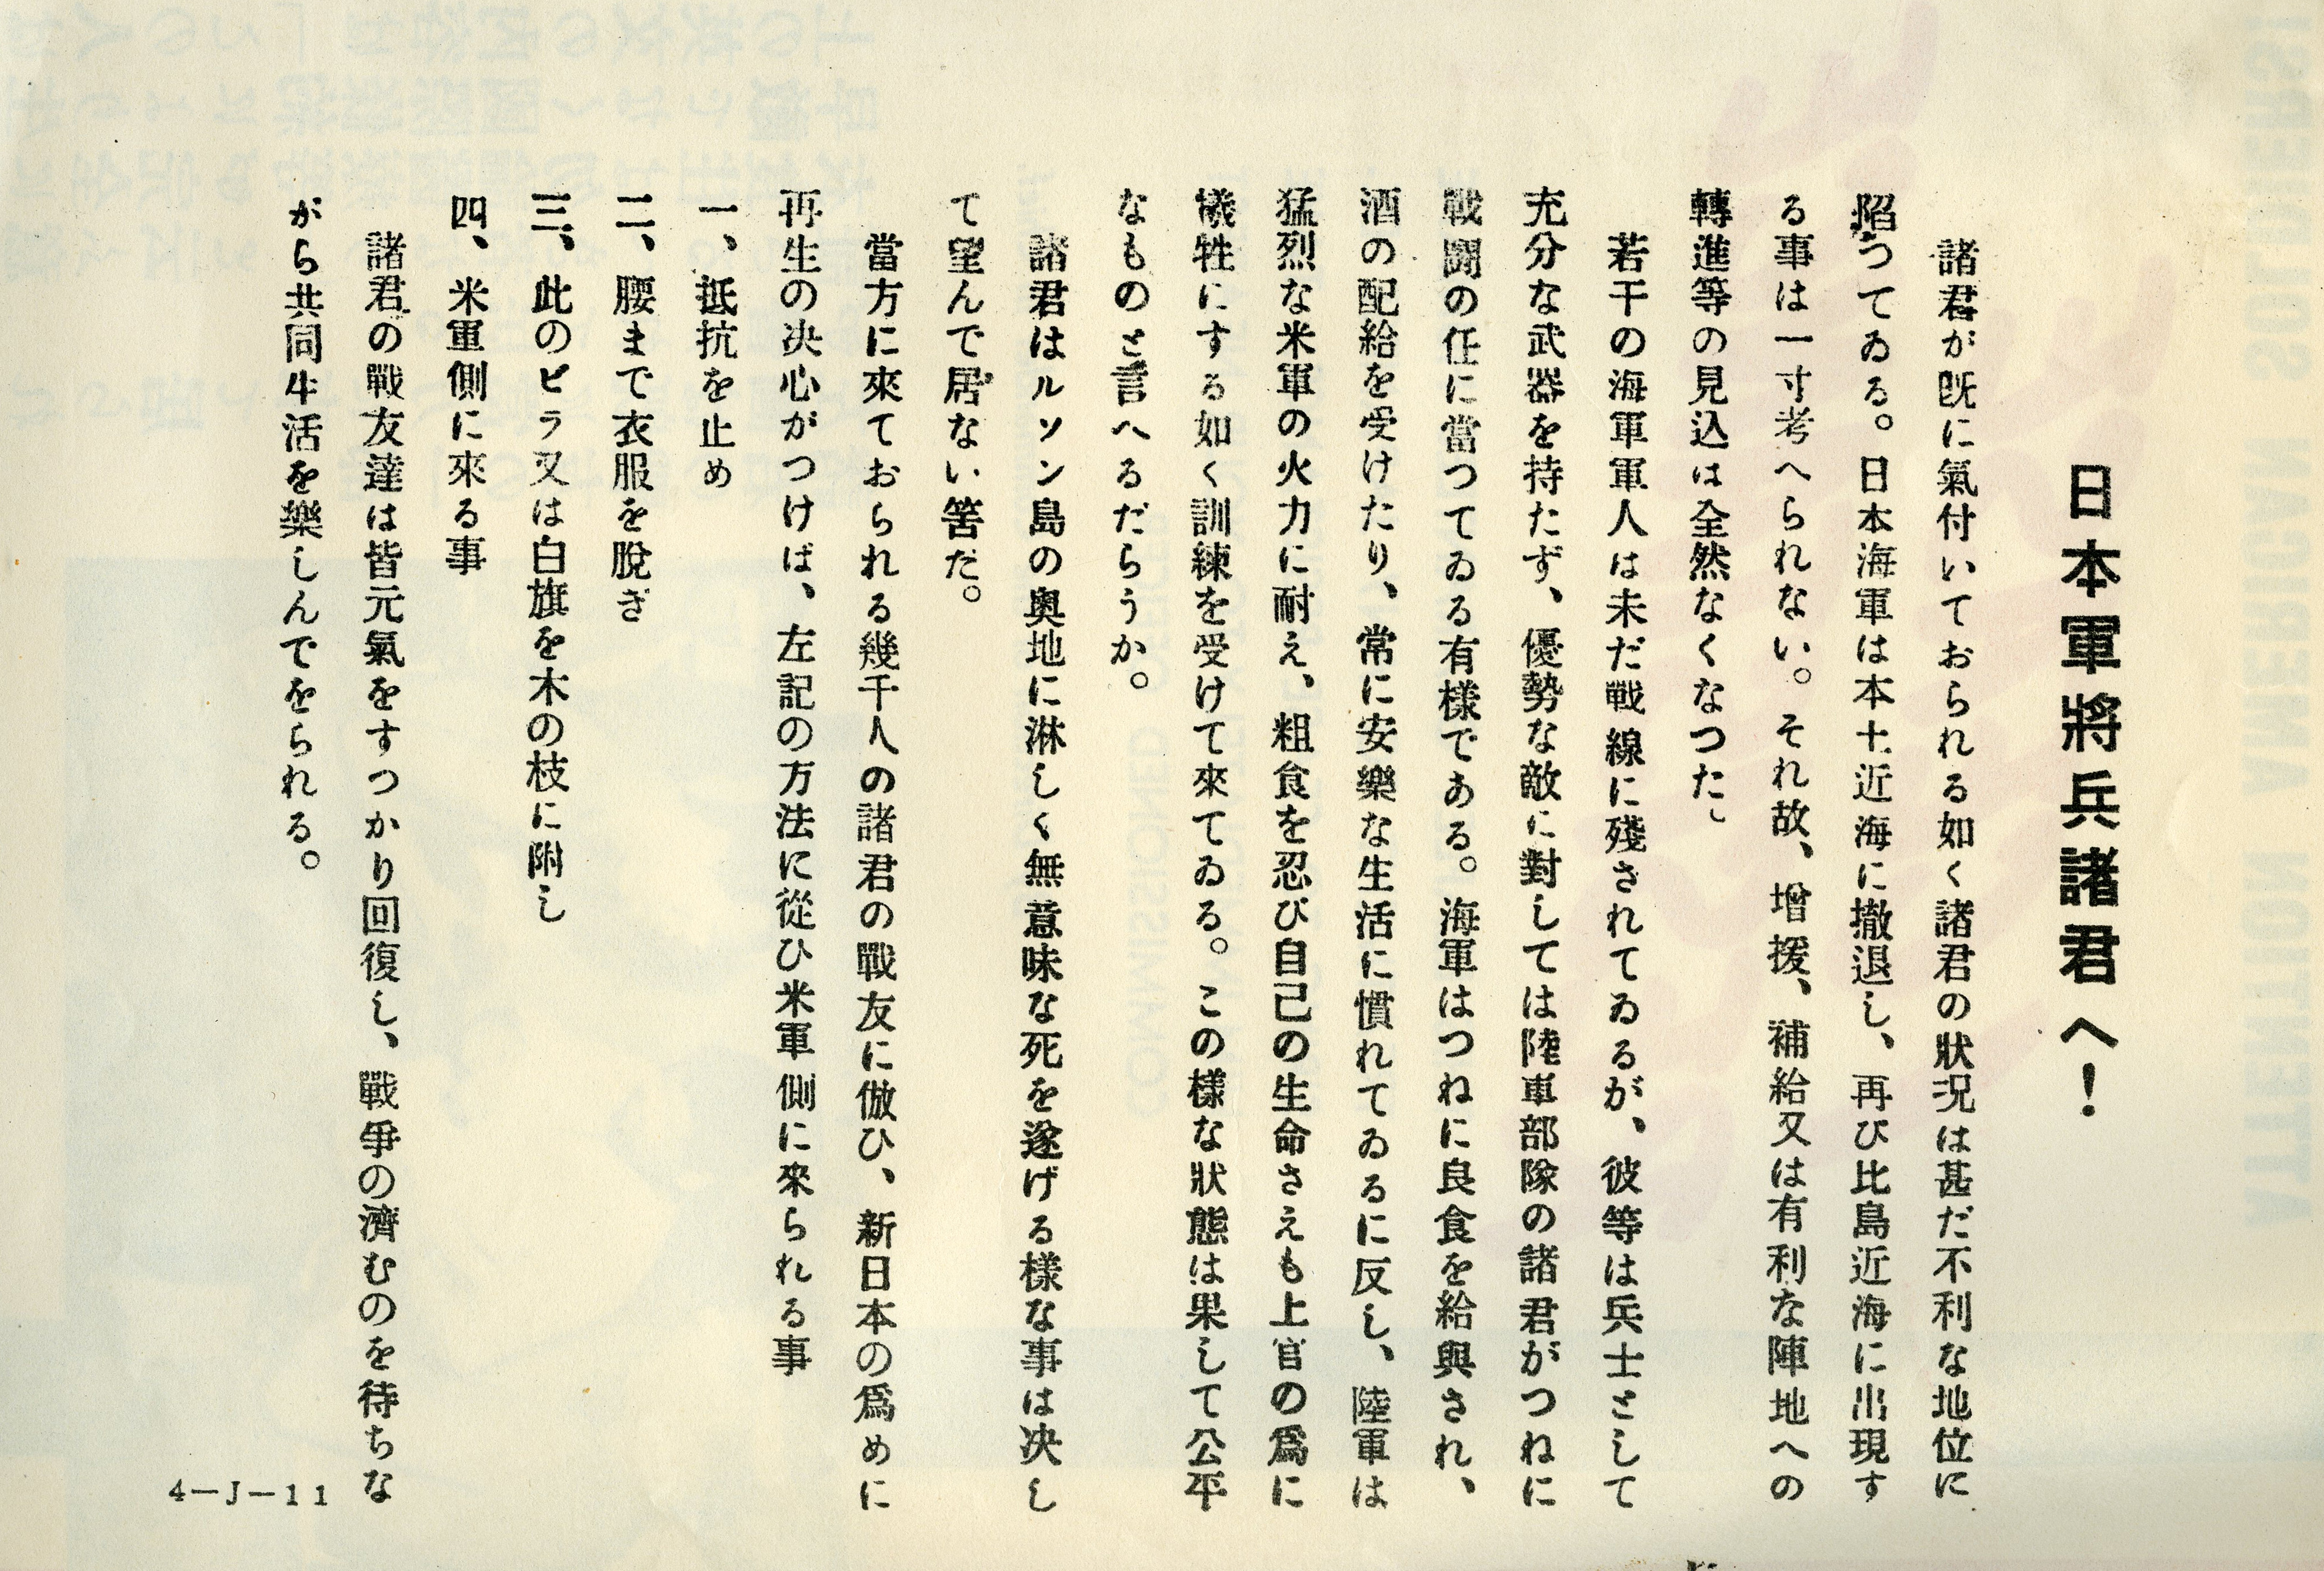 日本軍將兵諸君へ！
諸君が既に氣付いておられる如く諸君の狀況は甚だ不利な地位に
陷つてゐる。日本海軍は本土近海に撤退し、再び比島近海に出現す
る事は一寸考へられない。それ故、增援、補給又は有利な陣地への
轉進等の見込は全然なくなつた。
若干の海軍軍人は未だ戰線に殘されてゐるが、彼等は兵士として
充分な武器を持たず、優勢な敵に對しては陸軍部隊の諸君がつねに
戰鬪の任に當つてゐる有樣である。海軍はつねに良食を給與され、
酒の配給を受けたり、常に安樂な生活に慣れてゐるに反し、陸軍は
猛烈な米軍の火力に耐え、粗食を忍び自己の生命さえも上官の爲に
犧牲にする如く訓練を受けて來てゐる。この樣な狀態は果して公平
なものと言へるだらうか。
諸君はルソン島の奧地に淋しく無意味な死を遂げる樣な事は決し
て望んで居ない筈だ。
當方に來ておられる幾千人の諸君の戰友に倣ひ、新日本の爲めに
再生の決心がつけば、左記の方法に從ひ米軍側に來られる事
一、抵抗を止め
二、腰まで衣服を脫ぎ
三、此のビラ又は白旗を木の枝に附し
四、米軍側に來る事
諸君の戰友達は皆元氣をすつかり回復し、戰爭の濟むのを待ちな
がら共同生活を樂しんでをられる。
4-J-11